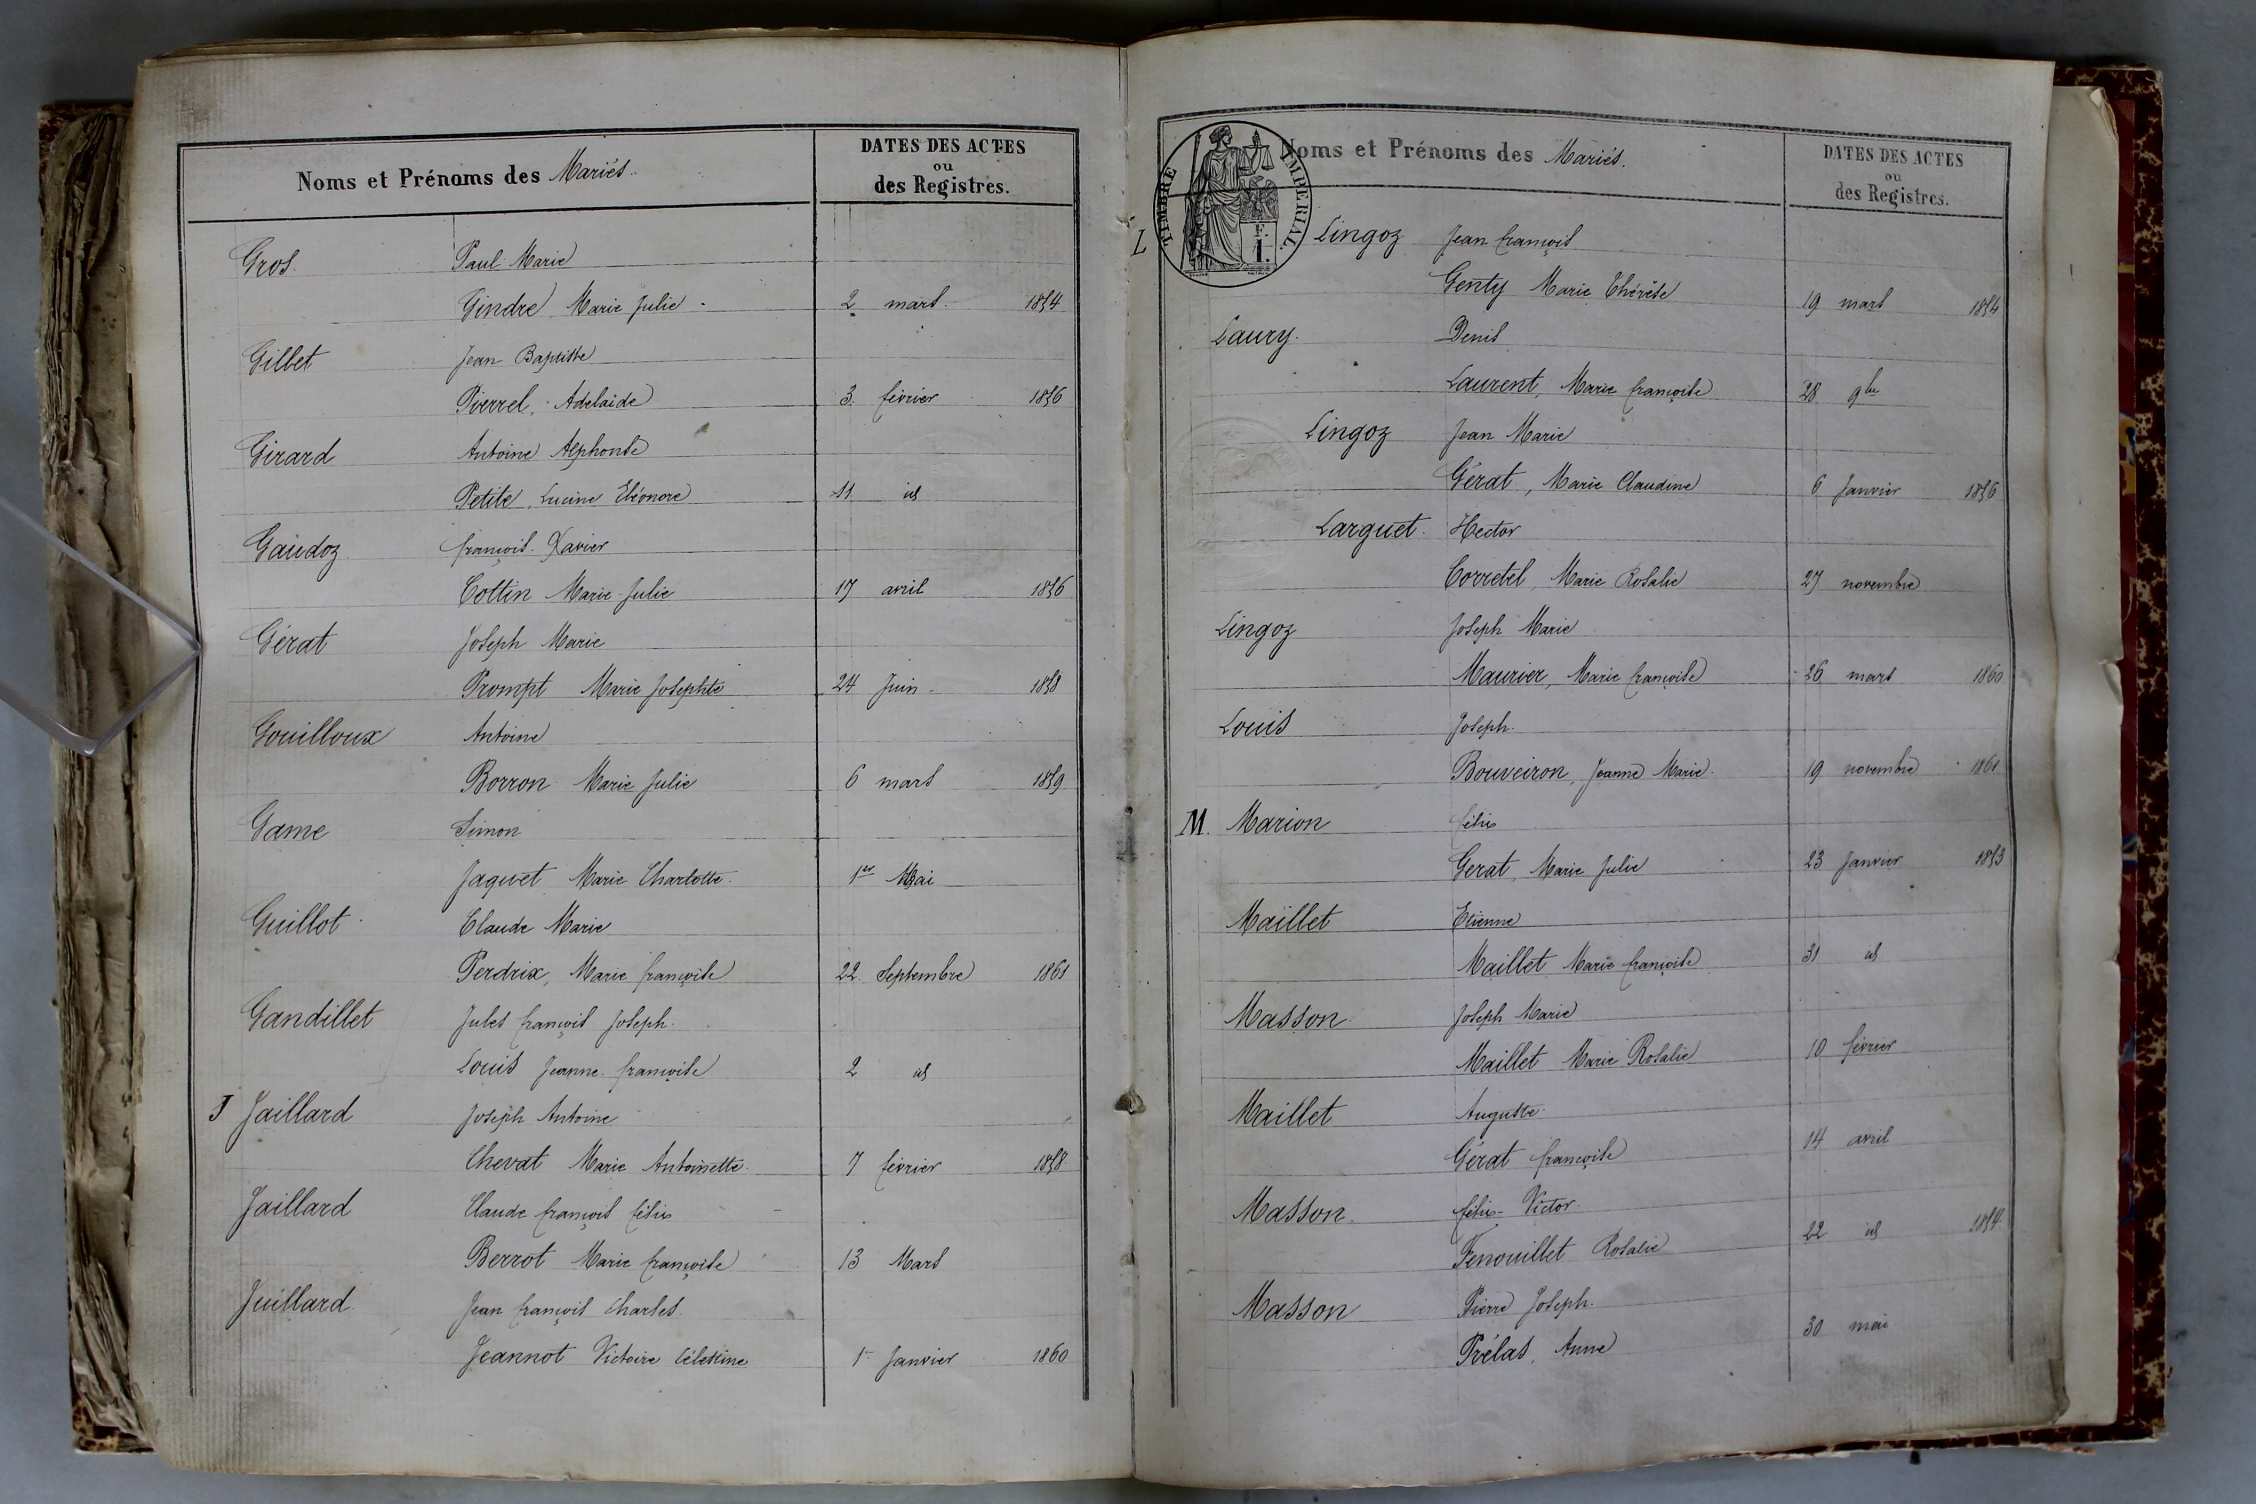 Noms et Prénoms des Mariés.
DATES DES ACTES
ou
des Registres.
Gros. Paul Marie
Gindre Marie Julie 2 mars 1854
Gillet Jean Baptiste
Pierrel, Adelaide 3 février 1856
Girard Antoine Alphonse
Petite, Lucine Eléonore 11 id
Gaudoz François Xavier
Cottin Marie Julie 17 avril 1856
Gérat Joseph Marie
Prompt Marie Josephte 24 Juin 1858
Gouilloux Antoine
Borron Marie Julie 6 mars 1859
Game Simon
Jaquet Marie Charlotte 1er Mai
Guillot Claude Marie
Perdrix, Marie françoise 22 Septembre 1861
Gandillet Jules françois Joseph.
Louis Jeanne françoise 2 id
J Jaillard Joseph Antoine
Chevat Marie Antoinette 7 février 1858
Jaillard Claude françois félix
Berrot Marie françoise 13 Mars
Juillard Jean françois Charles
Jeannot Victoire Célestine 1er Janvier 1860
Noms et Prénoms des Mariés.
DATES DES ACTES
ou
des Registres.
TIMBRE IMPERIAL
F.
1.
L Lingoz Jean françois
Genty Marie Thérèse 19 mars 1854
Laury Denis
Laurent, Marie françoise 28 9bre
Lingoz Jean Marie
Gérat, Marie Claudine 6 Janvier 1856
Larguet Hector
Corretel, Marie Rosalie 27 novembre
Lingoz Joseph Marie
Maurier, Marie françoise 26 mars 1860
Louis Joseph.
Bouveiron, Jeanne Marie 19 novembre 1861
M. Marion félix
Gerat, Marie Julie 23 Janvier 1853
Maillet Etienne
Maillet Marie françoise 31 id
Masson Joseph Marie
Maillet Marie Rosalie 10 février
Maillet Auguste
Gérat françoise 14 avril
Masson félix Victor
Fenouillet Rosalie 22 id 1854
Masson Pierre Joseph.
Prélas, Anne 30 mai